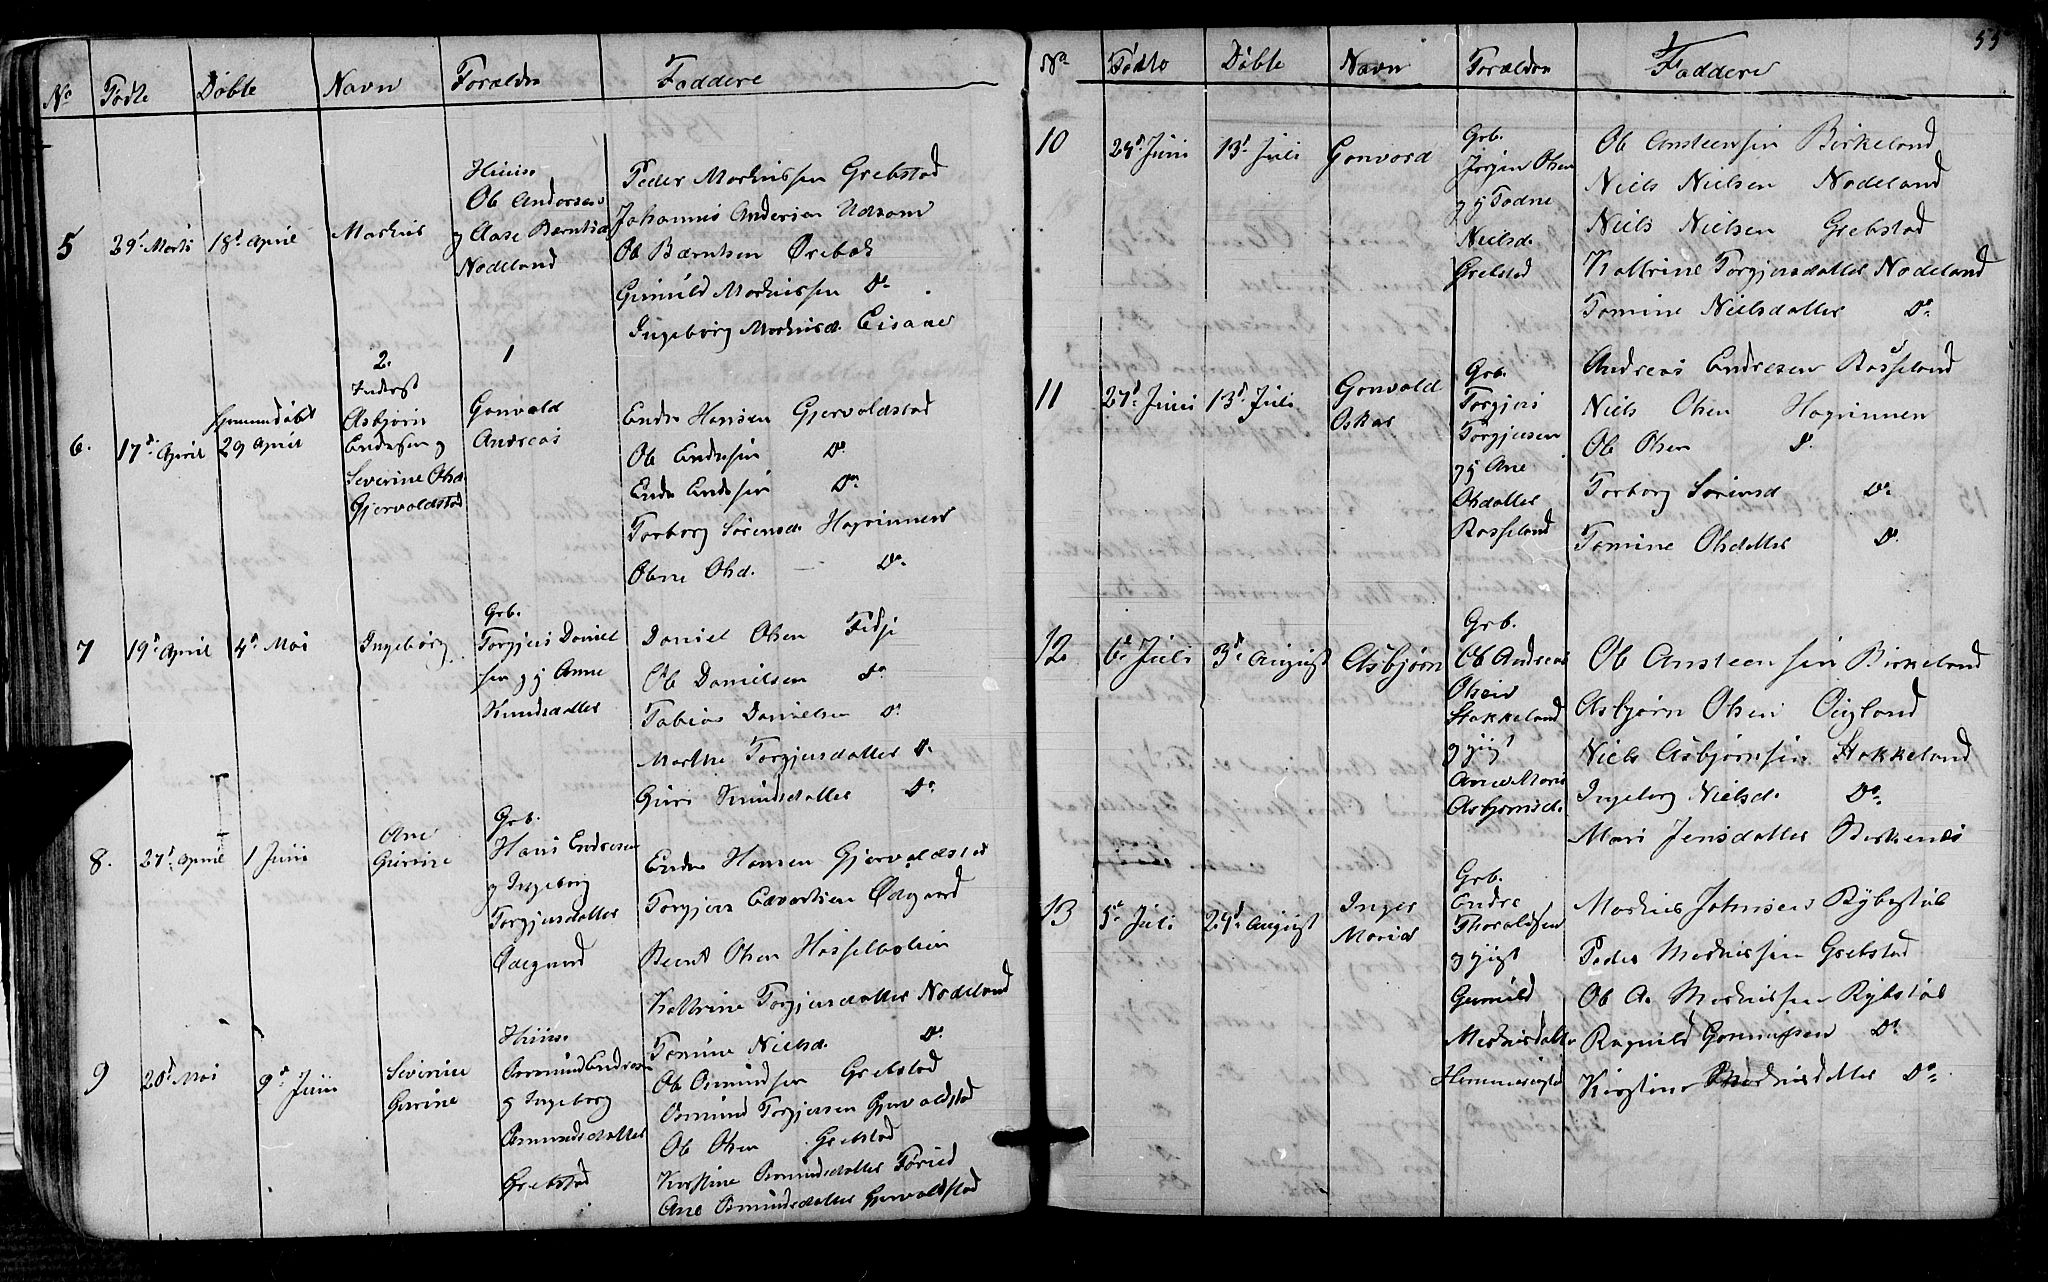 No Fødte Døbte Navn Forældre Faddere
5 29d Marts 18d April Markus
Huusm
Ob Andersen
g Aase Berntsd
Nodeland
Peder Markussen Grebstad
Johannes Andersen Udsom
Ob Berntsen Ørebek
Gunuld Markussen Do
Ingeborg Markusd. Eisaae
6. 17d April
29 April
2.
Inderst
Asbjørn
Endresen g
Severine Olsd.
Gjervoldstad
1
Gonvald
Andreas
Endre Hansen Gjervoldstad
Ob Endresen Do
Endre Endresen Do
Torborg Sørensd. Høgrinnen
Olene Olsd. Do
7 19d April 4d Mai Ingeborg
Grb.
Torgjus Daniel
sen g g Anne
Knudsdatter
Daniel Olsen Fidje
Ob Danielsen Do
Tobias Danielsen Do
Marthe Torgjusdatter Do
Guri Knudsdatter Do
8. 27d April 1 Juni
Ane
Gurine
Grb.
Hans Endresen
g Ingeborg
Torgjusdatter
Ødegaard
Endre Hansen Gjervoldstad
Torgjus Edvartsen Ødegaard
Bernt Olsen Hasselbakken
Kattrine Torgjusdatter Nodeland
Tomine Nielsd. Do
9 20d Mai 9d Juni
Severine
Gurine
Huusm
Osmund Endresen
g Ingeborg
Osmundsdatter
Grebstad
Ob Osmundsen Grebstad
Osmund Torgjussen Gjervoldstad
Ob Olsen Grebstad
Kirstine Osmundsdatter Førud
Ane Osmundsdatter Gjervoldstad
55
No Fødte Døbte Navn Forældre Faddere
10 24d Juni 13d Juli Gonvord
Grb.
Jørgen Olsen
g g Todne
Nielsd.
Grebstad
Ob Ansteensen Birkeland
Niels Nielsen Nodeland
Niels Nielsen Grebstad
Kattrine Torgjusdatter Nodeland
Tomine Nielsdatter Do
11 27d Juni 13d Juli
Gonvald
Oskar
Grb.
Torgjus
Torgjusen
g g Ane
Olsdatter
Rosseland
Andreas Endresen Rosseland
Niels Olsen Høgrinnen
Ob Olsen Do
Torborg Sørensd Do
Tomine Olsdatter Do
12 6d Juli 3d August Asbjørn
Grb.
Ob Andreas
Olsen
Stokkeland
g gigt
Ane Marie
Asbjørnsd.
Ob Ansteensen Birkeland
Asbjørn Olsen Øigland
Niels Asbjørnsen Stokkeland
Ingeborg Nielsd. Do
Mari Jensdatter Birkenes
13 5d Juli 24d August
Inger
Maria
Grb.
Endre
Thoraldsen
g gigt
Gunuld
Markusdatter
Markus Johnsen Rybestøl
Peder Markussen Grebstad
Ob A. Markussen Rybstøl
Ragnild Do
Kirstine Markusdatter Do